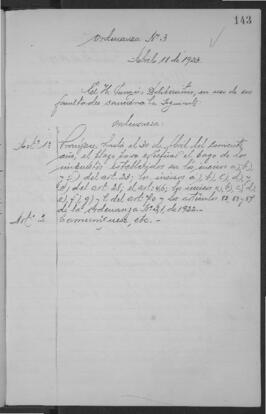 143
Ordenanza Nº 3
Abril 11 de 1923.
El H. Concejo Deliberante, en uso de sus
facultades sanciona la siguiente
Ordenanza:
Art. 1º Prorrógase hasta el 30 de Abril del corriente
año, el plazo para efectuar el pago de los
impuestos establecidos en los incisos a), b)
y c) del art. 23; los incisos a), b), c), d), y
d) del art. 28; el art. 46; los incisos a), b), c), d),
e), f), g) y h del art. 40 y los artículos 52, 53, 57
de la Ordenanza Nº 21, de 1922.
Art. 2 Comuníquese, etc.